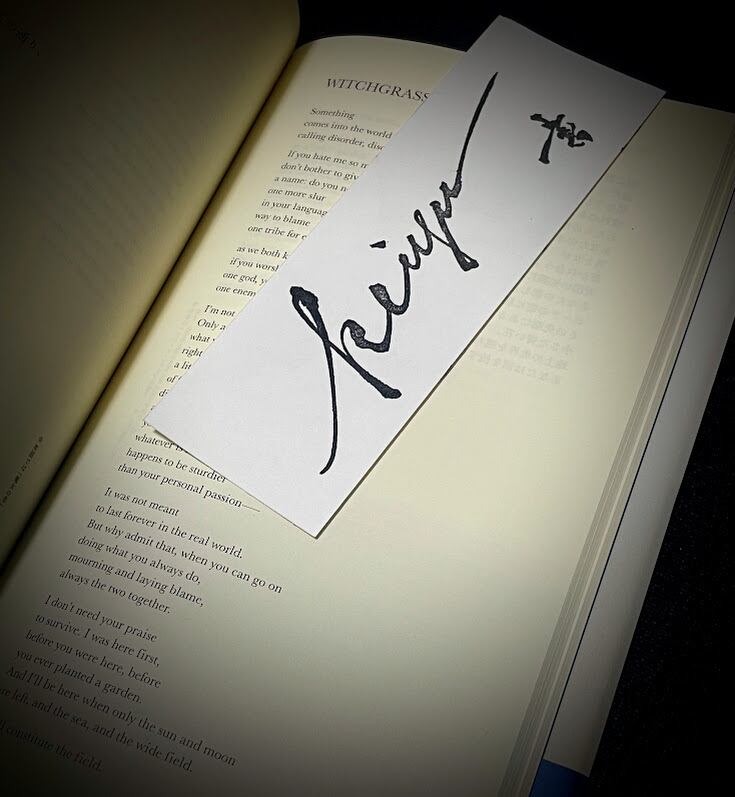 WITCHGRASS
Something
comes into the world
calling disorder,
If you hate me so
don't bother to
a name: do you
one more slur
in your
way to blame
one tribe for
as we both
if you
one god,
one
I'm not
Only
what
right
a
of
whatever
happens to be sturdier
than your personal passion—
It was not meant
to last forever in the real world.
But why admit that, when you can go on
doing what you always do,
mourning and laying blame,
always the two together.
I don't need your praise
to survive. I was here first,
before you were here, before
you ever planted a garden.
And I'll be here when only the sun and moon
left, and the sea, and the wide field.
constitute the field.
keiyu